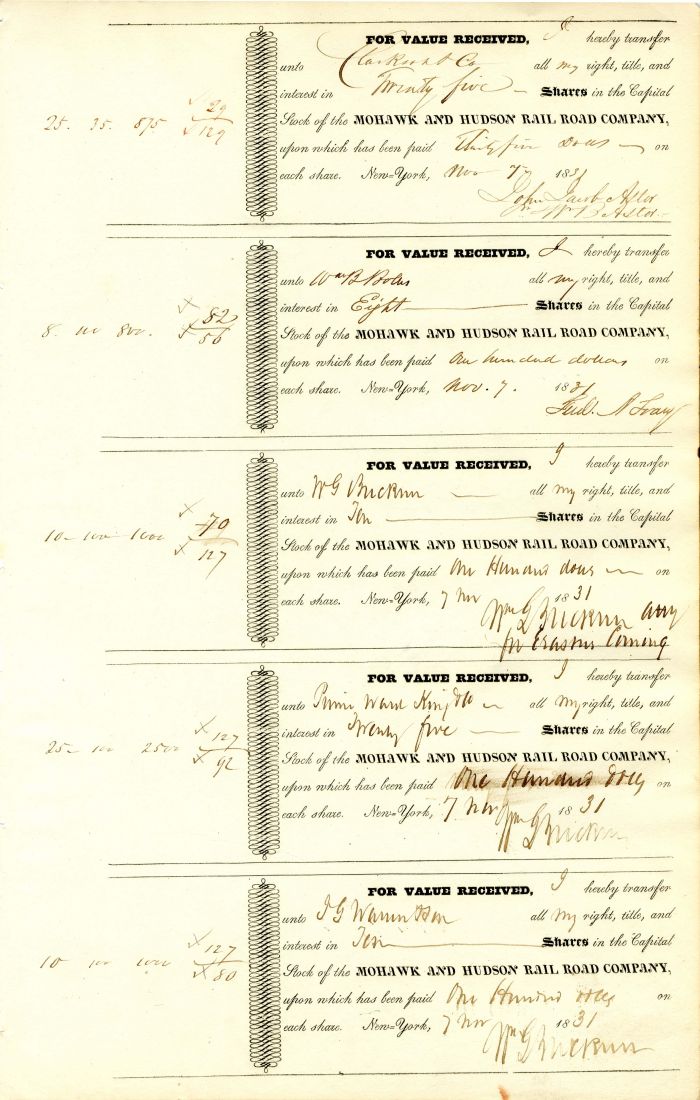 FOR VALUE RECEIVED, I hereby transfer
unto Clarkson & Co all my right, title, and
interest in Twenty five Shares in the Capital
25. 35. 875 29 129 Stock of the MOHAWK AND HUDSON RAIL ROAD COMPANY,
upon which has been paid Thirty five Dolls on
each share. New=York, Nov 7 1831
John Jacob Astor
Wm B Astor
FOR VALUE RECEIVED, I hereby transfer
unto Wm B all my right, title, and
interest in Eight Shares in the Capital
8. 100 800. 82 56 Stock of the MOHAWK AND HUDSON RAIL ROAD COMPANY,
upon which has been paid One hundred dollars on
each share. New=York, Nov. 7. 1831
Fred. A Tracy
FOR VALUE RECEIVED, I hereby transfer
unto W G all my right, title, and
interest in Ten Shares in the Capital
10 100 1000 70 127 Stock of the MOHAWK AND HUDSON RAIL ROAD COMPANY,
upon which has been paid One Hundred dolls on
each share. New=York, 7 Nov 1831
Wm G atty
for Erastus Corning
FOR VALUE RECEIVED, I hereby transfer
unto Prime Ward King & Co all my right, title, and
interest in Twenty five Shares in the Capital
25 100 2500 127 92 Stock of the MOHAWK AND HUDSON RAIL ROAD COMPANY,
upon which has been paid One Hundred dolls on
each share. New=York, 7 Nov 1831
Wm G
FOR VALUE RECEIVED, I hereby transfer
unto J G Warren & Son all my right, title, and
interest in Ten Shares in the Capital
10 100 1000 127 80 Stock of the MOHAWK AND HUDSON RAIL ROAD COMPANY,
upon which has been paid One Hundred dolls on
each share. New=York, 7 Nov 1831
Wm G